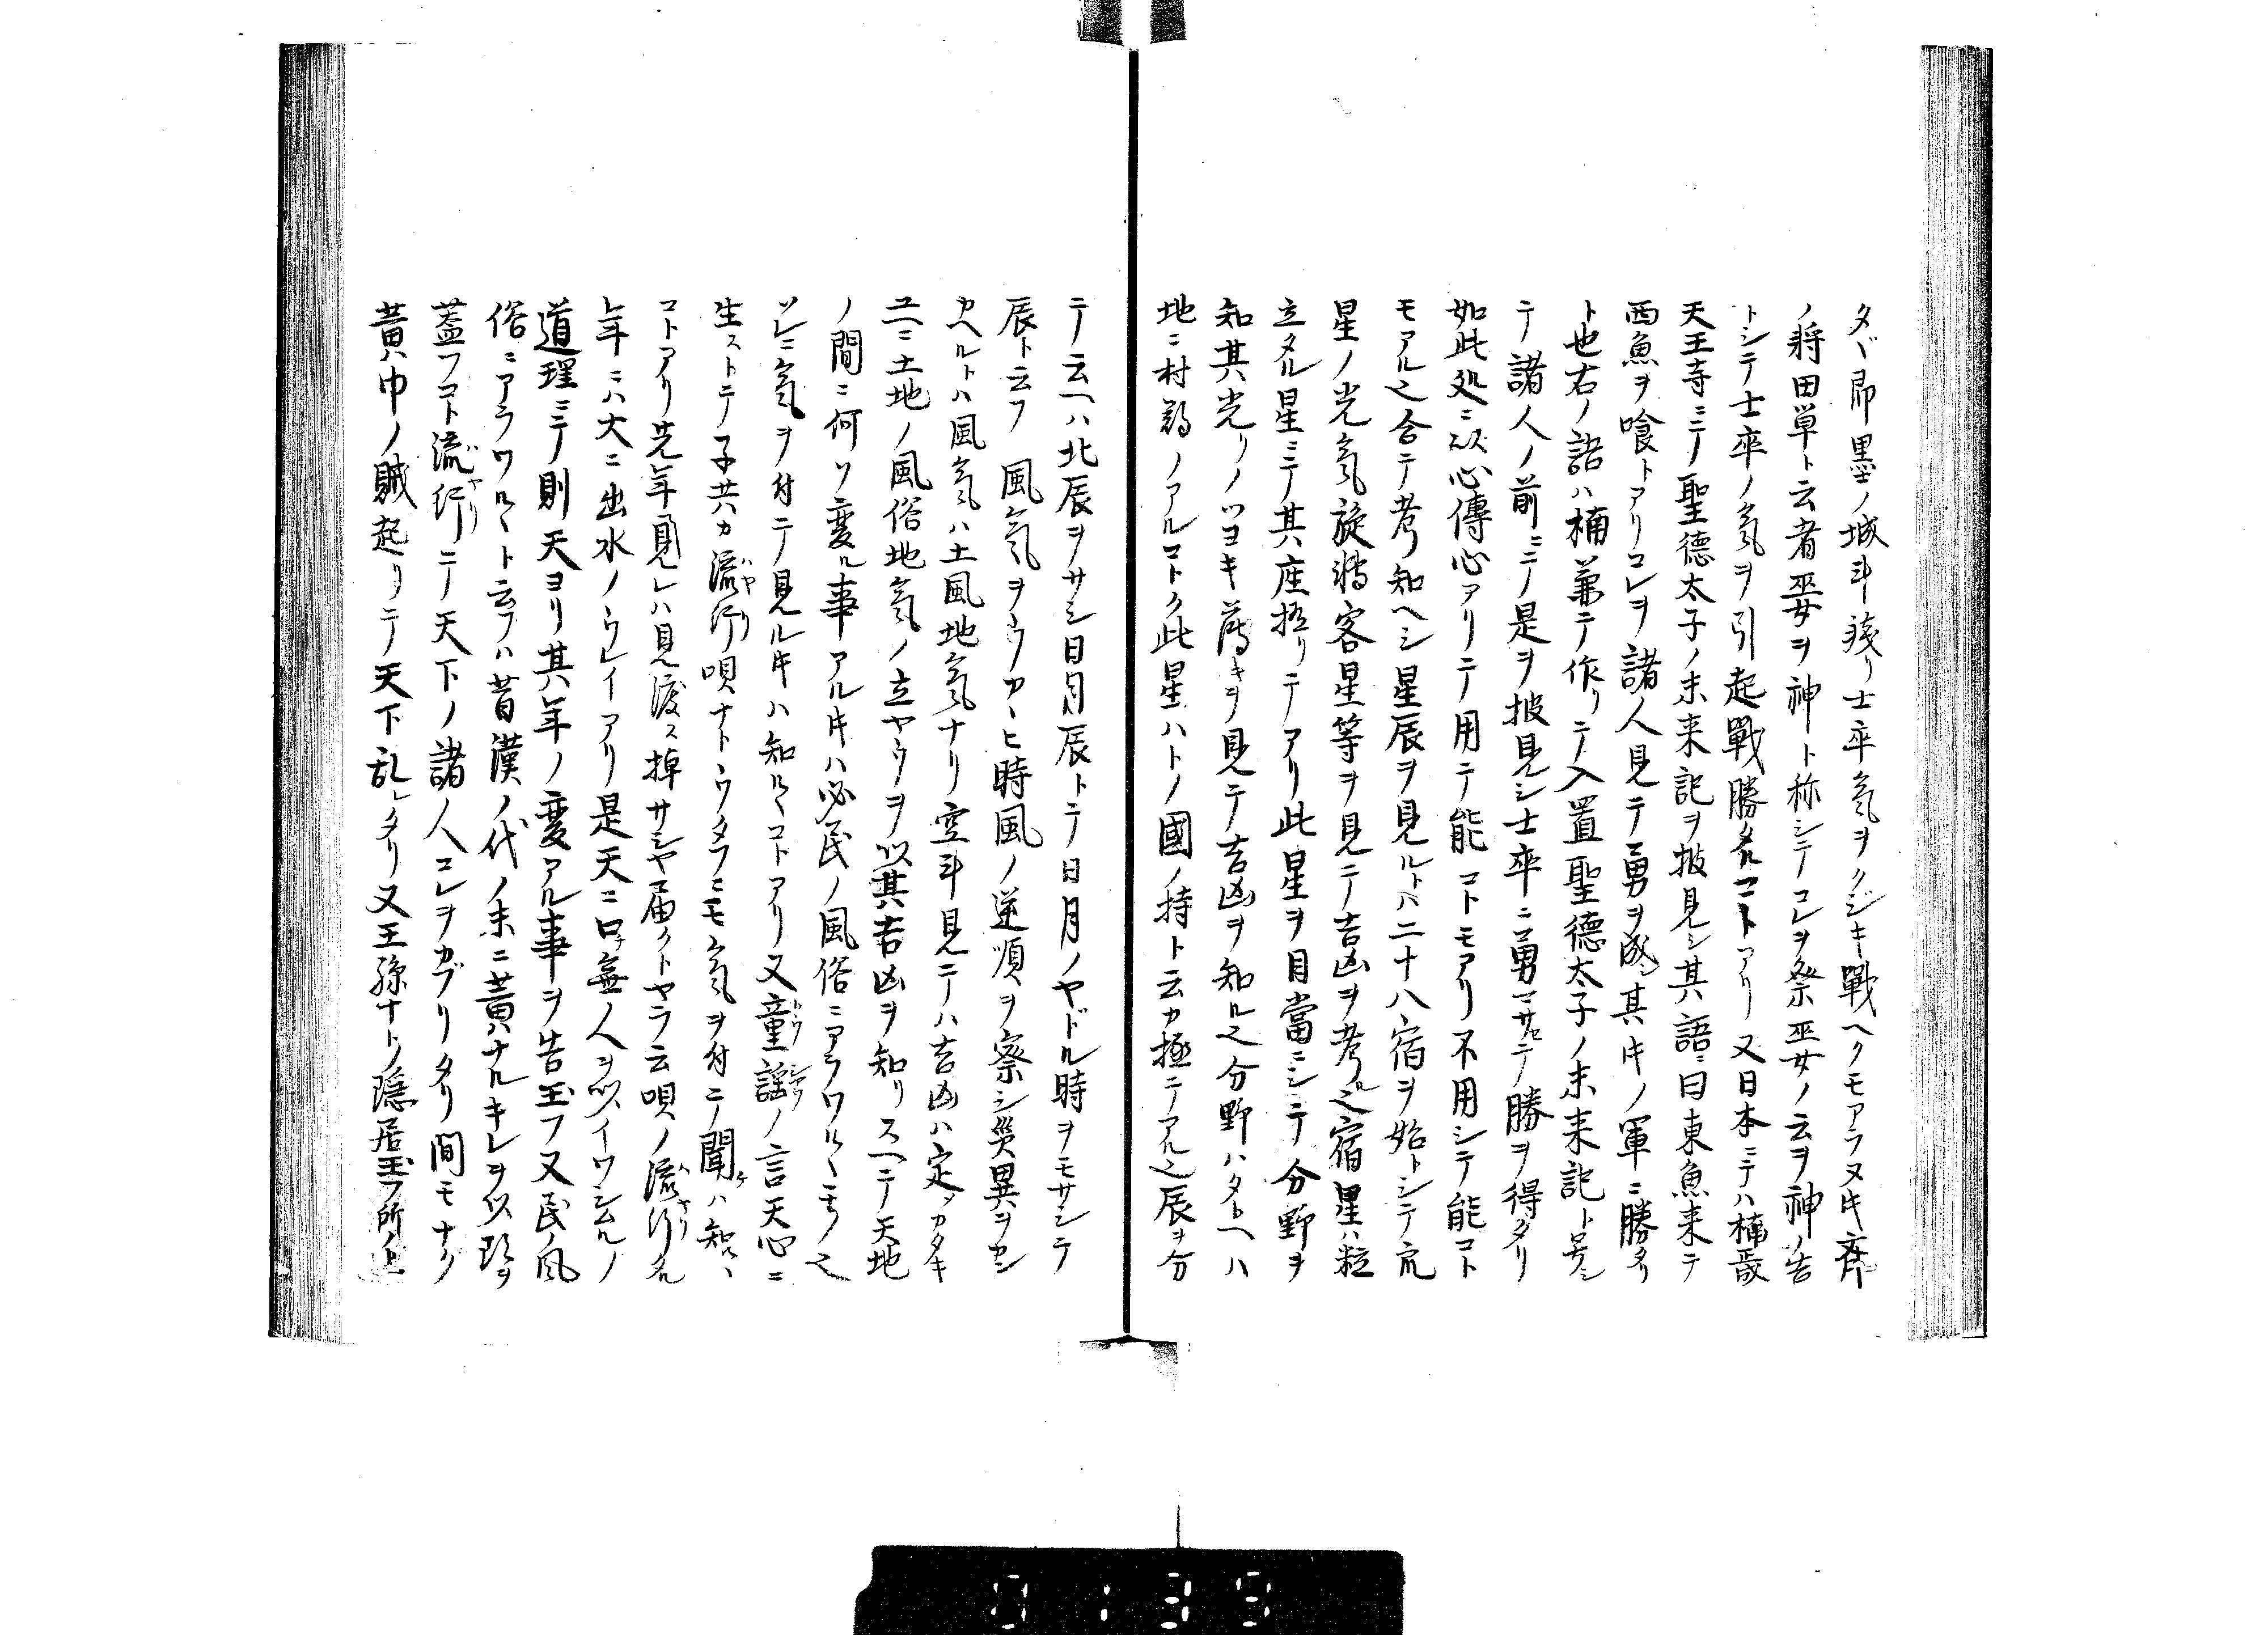 タヾ即墨ノ城斗残リ士卒氣ヲクジキ戰ヘクモアラヌ𪜈齊
ノ將田単ト云者巫女ヲ神ト称シテコレヲ祭巫女ノ云ヲ神ノ告
トシテ士卒ノ氣ヲ引起戰勝タルコトアリ又日本ニテハ楠
天王寺ニテ聖德太子ノ未来記ヲ披見シ其語ニ曰東魚来テ
西魚ヲ喰トアリコレヲ諸人見テ勇ヲ成シ其𪜈ノ軍ニ勝タリ
ト也右ノ語ハ楠兼テ作リテ入置聖德太子ノ未来記ト号シ
テ諸人ノ前ニテ是ヲ披見シ士卒ニ勇マサセテ勝ヲ得タリ
如此処ニ以心傳心アリテ用テ能コトモアリ不用シテ能コト
モアル也合テ考知ヘシ星辰ヲ見ルトハ二十八宿ヲ始トシテ
星ノ光氣旋轉客星等ヲ見テ吉凶ヲ考ル也宿星ハ粒
立タル星ニテ其座極リテアリ此星ヲ目當ニシテ分野ヲ
知其光リノツヨキ薄キヲ見テ吉凶ヲ知ル也分野ハタトヘハ
地ニ村郡ノアルコトク此星ハトノ國ノ持ト云カ極テアル也辰ヲ分
テ云ヘハ北辰ヲサシ日月辰トテ日月ノヤドル時ヲモサシテ
辰ト云フ 風氣ヲウカヽヒ時風ノ逆順ヲ察シ災異ヲカン
カヘルトハ風氣ハ土風地氣ナリ空斗見テハ吉凶ハ定メカタキ
ユヘニ土地ノ風俗地氣ノ立ヤウヲ以其吉凶ヲ知リスヘテ天地
ノ間ニ何ソ変ル事アル𪜈ハ必民ノ風俗ニアラワルヽモノ也
ソレニ氣ヲ付テ見ル𪜈ハ知ルヽコトアリ又童謡ノ言天心ニ
生ストテ子共カ流行唄ナトウタフニモ氣ヲ付テ聞ケハ知ルヽ
コトアリ先年見レハ見渡ス掉サシヤ届クトヤラ云唄ノ流行タル
年ニハ大ニ出水ノウレイアリ是天ニ口チ無人ヲ以イワシムルノ
道理ニテ則天ヨリ其年ノ変アル事ヲ告玉フ又民ノ風
俗ニアラワルヽト云フハ昔漢ノ代ノ末ニ黄ハナルキレヲ以頭ヲ
蓋フコト流行テ天下ノ諸人コレヲカブリタリ間モナク
黄巾ノ賊起リテ天下乱レタリ又王孫ナトノ隱居玉フ所ノ上